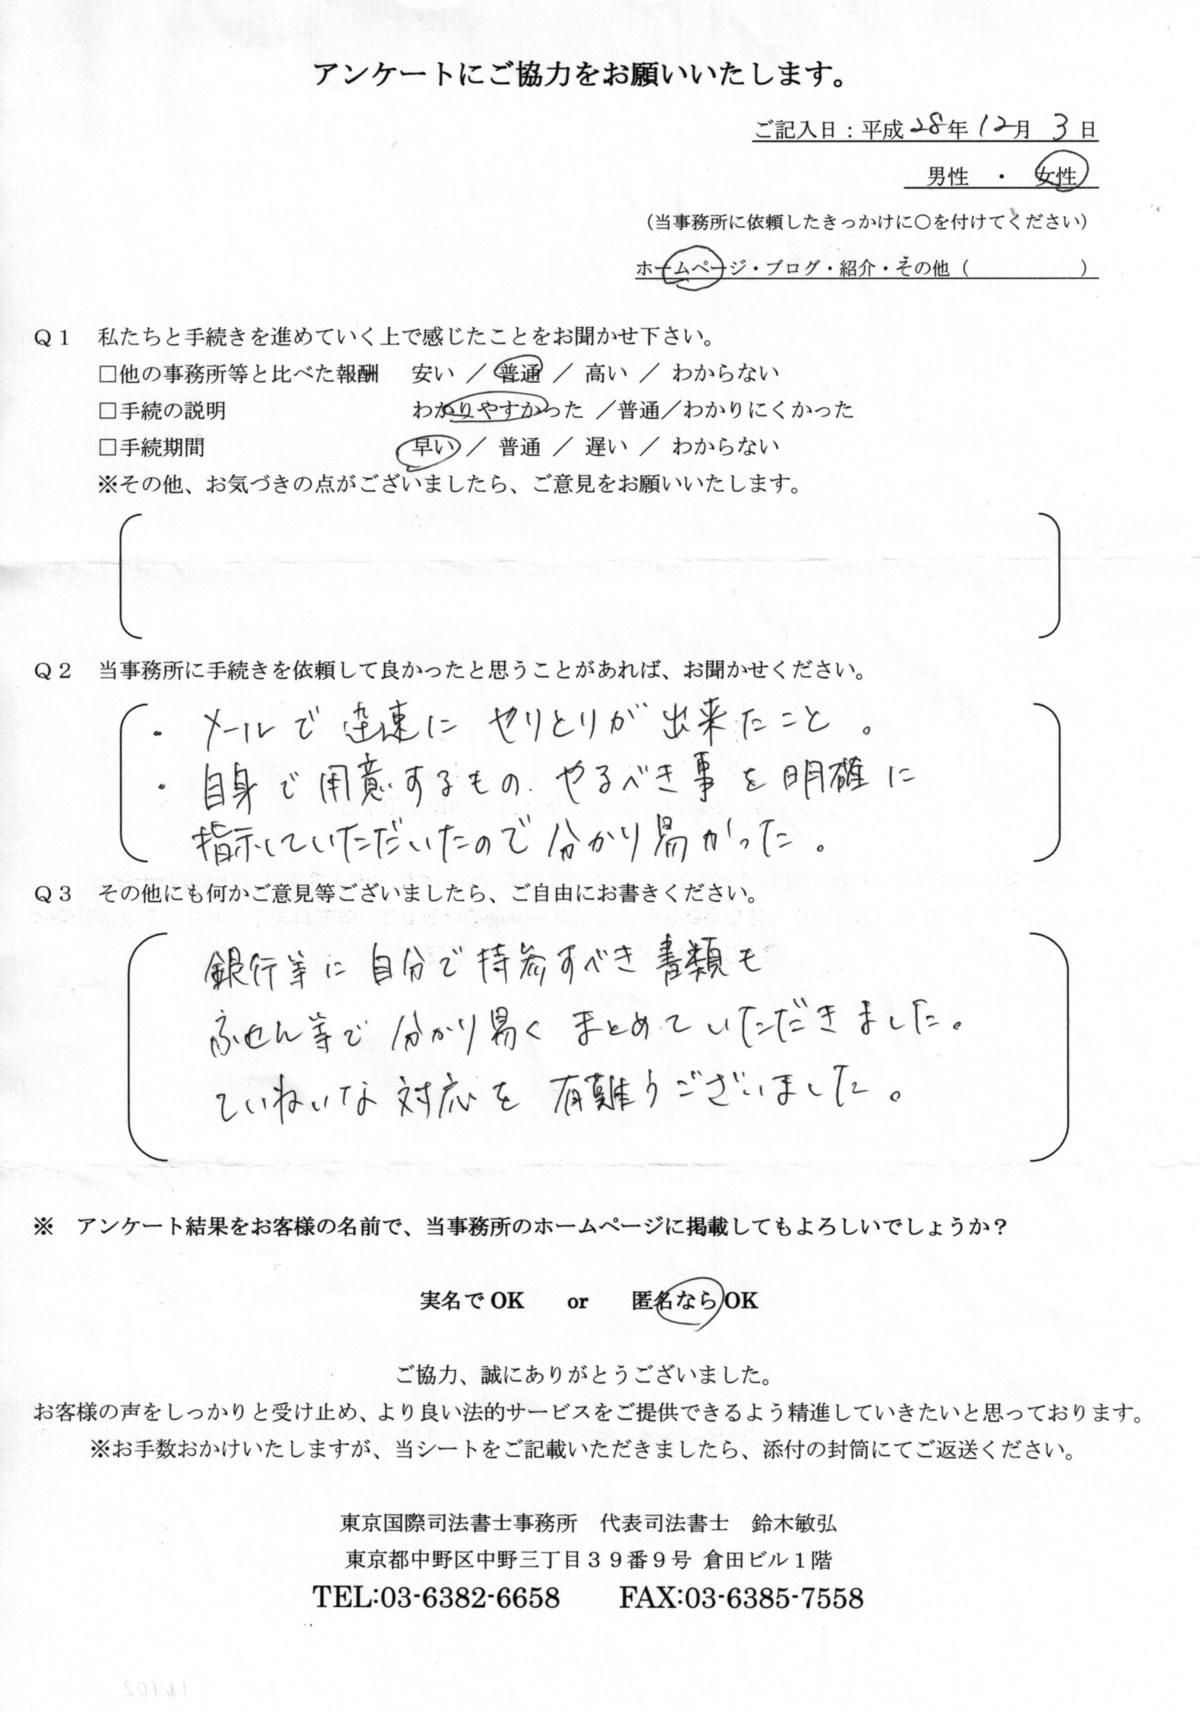 アンケートにご協力をお願いいたします。
ご記入日：平成28年12月3日
男性　・　女性
（当事務所に依頼したきっかけに○を付けてください）
ホームページ・ブログ・紹介・その他（　　　　　）
Ｑ１　私たちと手続きを進めていく上で感じたことをお聞かせ下さい。
□他の事務所等と比べた報酬　安い ／ 普通 ／ 高い ／ わからない
□手続の説明　わかりやすかった ／普通／わかりにくかった
□手続期間　早い ／ 普通 ／ 遅い ／ わからない
※その他、お気づきの点がございましたら、ご意見をお願いいたします。
Ｑ２　当事務所に手続きを依頼して良かったと思うことがあれば、お聞かせください。
・メールで迅速に やりとりが 出来たこと。
・自身で用意するもの、やるべき事を明確に
指示していただいたので分かり易かった。
Ｑ３　その他にも何かご意見等ございましたら、ご自由にお書きください。
銀行等に自分で持参すべき書類も
ふせん等で分かり易く まとめていただきました。
ていねいな対応を有難うございました。
※　アンケート結果をお客様の名前で、当事務所のホームページに掲載してもよろしいでしょうか？
実名で OK　or　匿名なら OK
ご協力、誠にありがとうございました。
お客様の声をしっかりと受け止め、より良い法的サービスをご提供できるよう精進していきたいと思っております。
※お手数おかけいたしますが、当シートをご記載いただきましたら、添付の封筒にてご返送ください。
東京国際司法書士事務所　代表司法書士　鈴木敏弘
東京都中野区中野三丁目３９番９号 倉田ビル１階
TEL:03-6382-6658　FAX:03-6385-7558